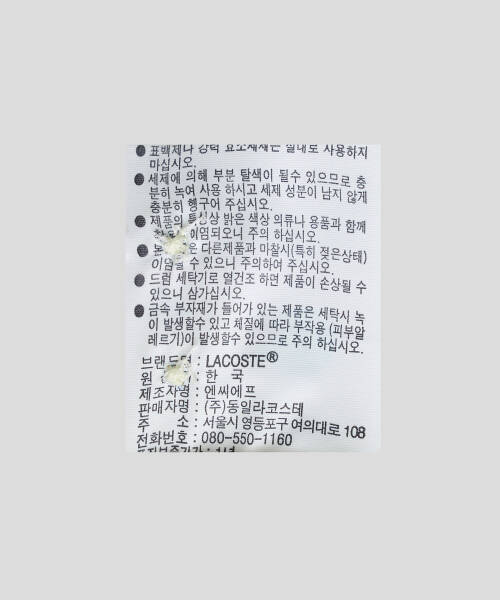 ● 표백제나 강력 효소세제는 절대로 사용하지
마십시오.
● 세제에 의해 부분 탈색이 될수 있으므로 충
분히 녹여 사용 하시고 세제 성분이 남지 않게
충분히 헹구어 주십시오.
● 제품의 특성상 밝은 색상 의류나 용품과 함께
이염되오니 주의 하십시오.
● 다른제품과 마찰시(특히 젖은상태)
이염될 수 있으니 주의하여 주십시오.
● 드럼 세탁기로 열건조 하면 제품이 손상될 수
있으니 삼가십시오.
● 금속 부자재가 들어가 있는 제품은 세탁시 녹
이 발생할수 있고 체질에 따라 부작용 (피부알
레르기)이 발생할수 있으므로 주의 하십시오.
브랜드명 : LACOSTE®
원 : 한 국
제조자명 : 엔씨에프
판매자명 : (주)동일라코스테
주 소 : 서울시 영등포구 여의대로 108
전화번호 : 080-550-1160
품질보증기간 : 1년